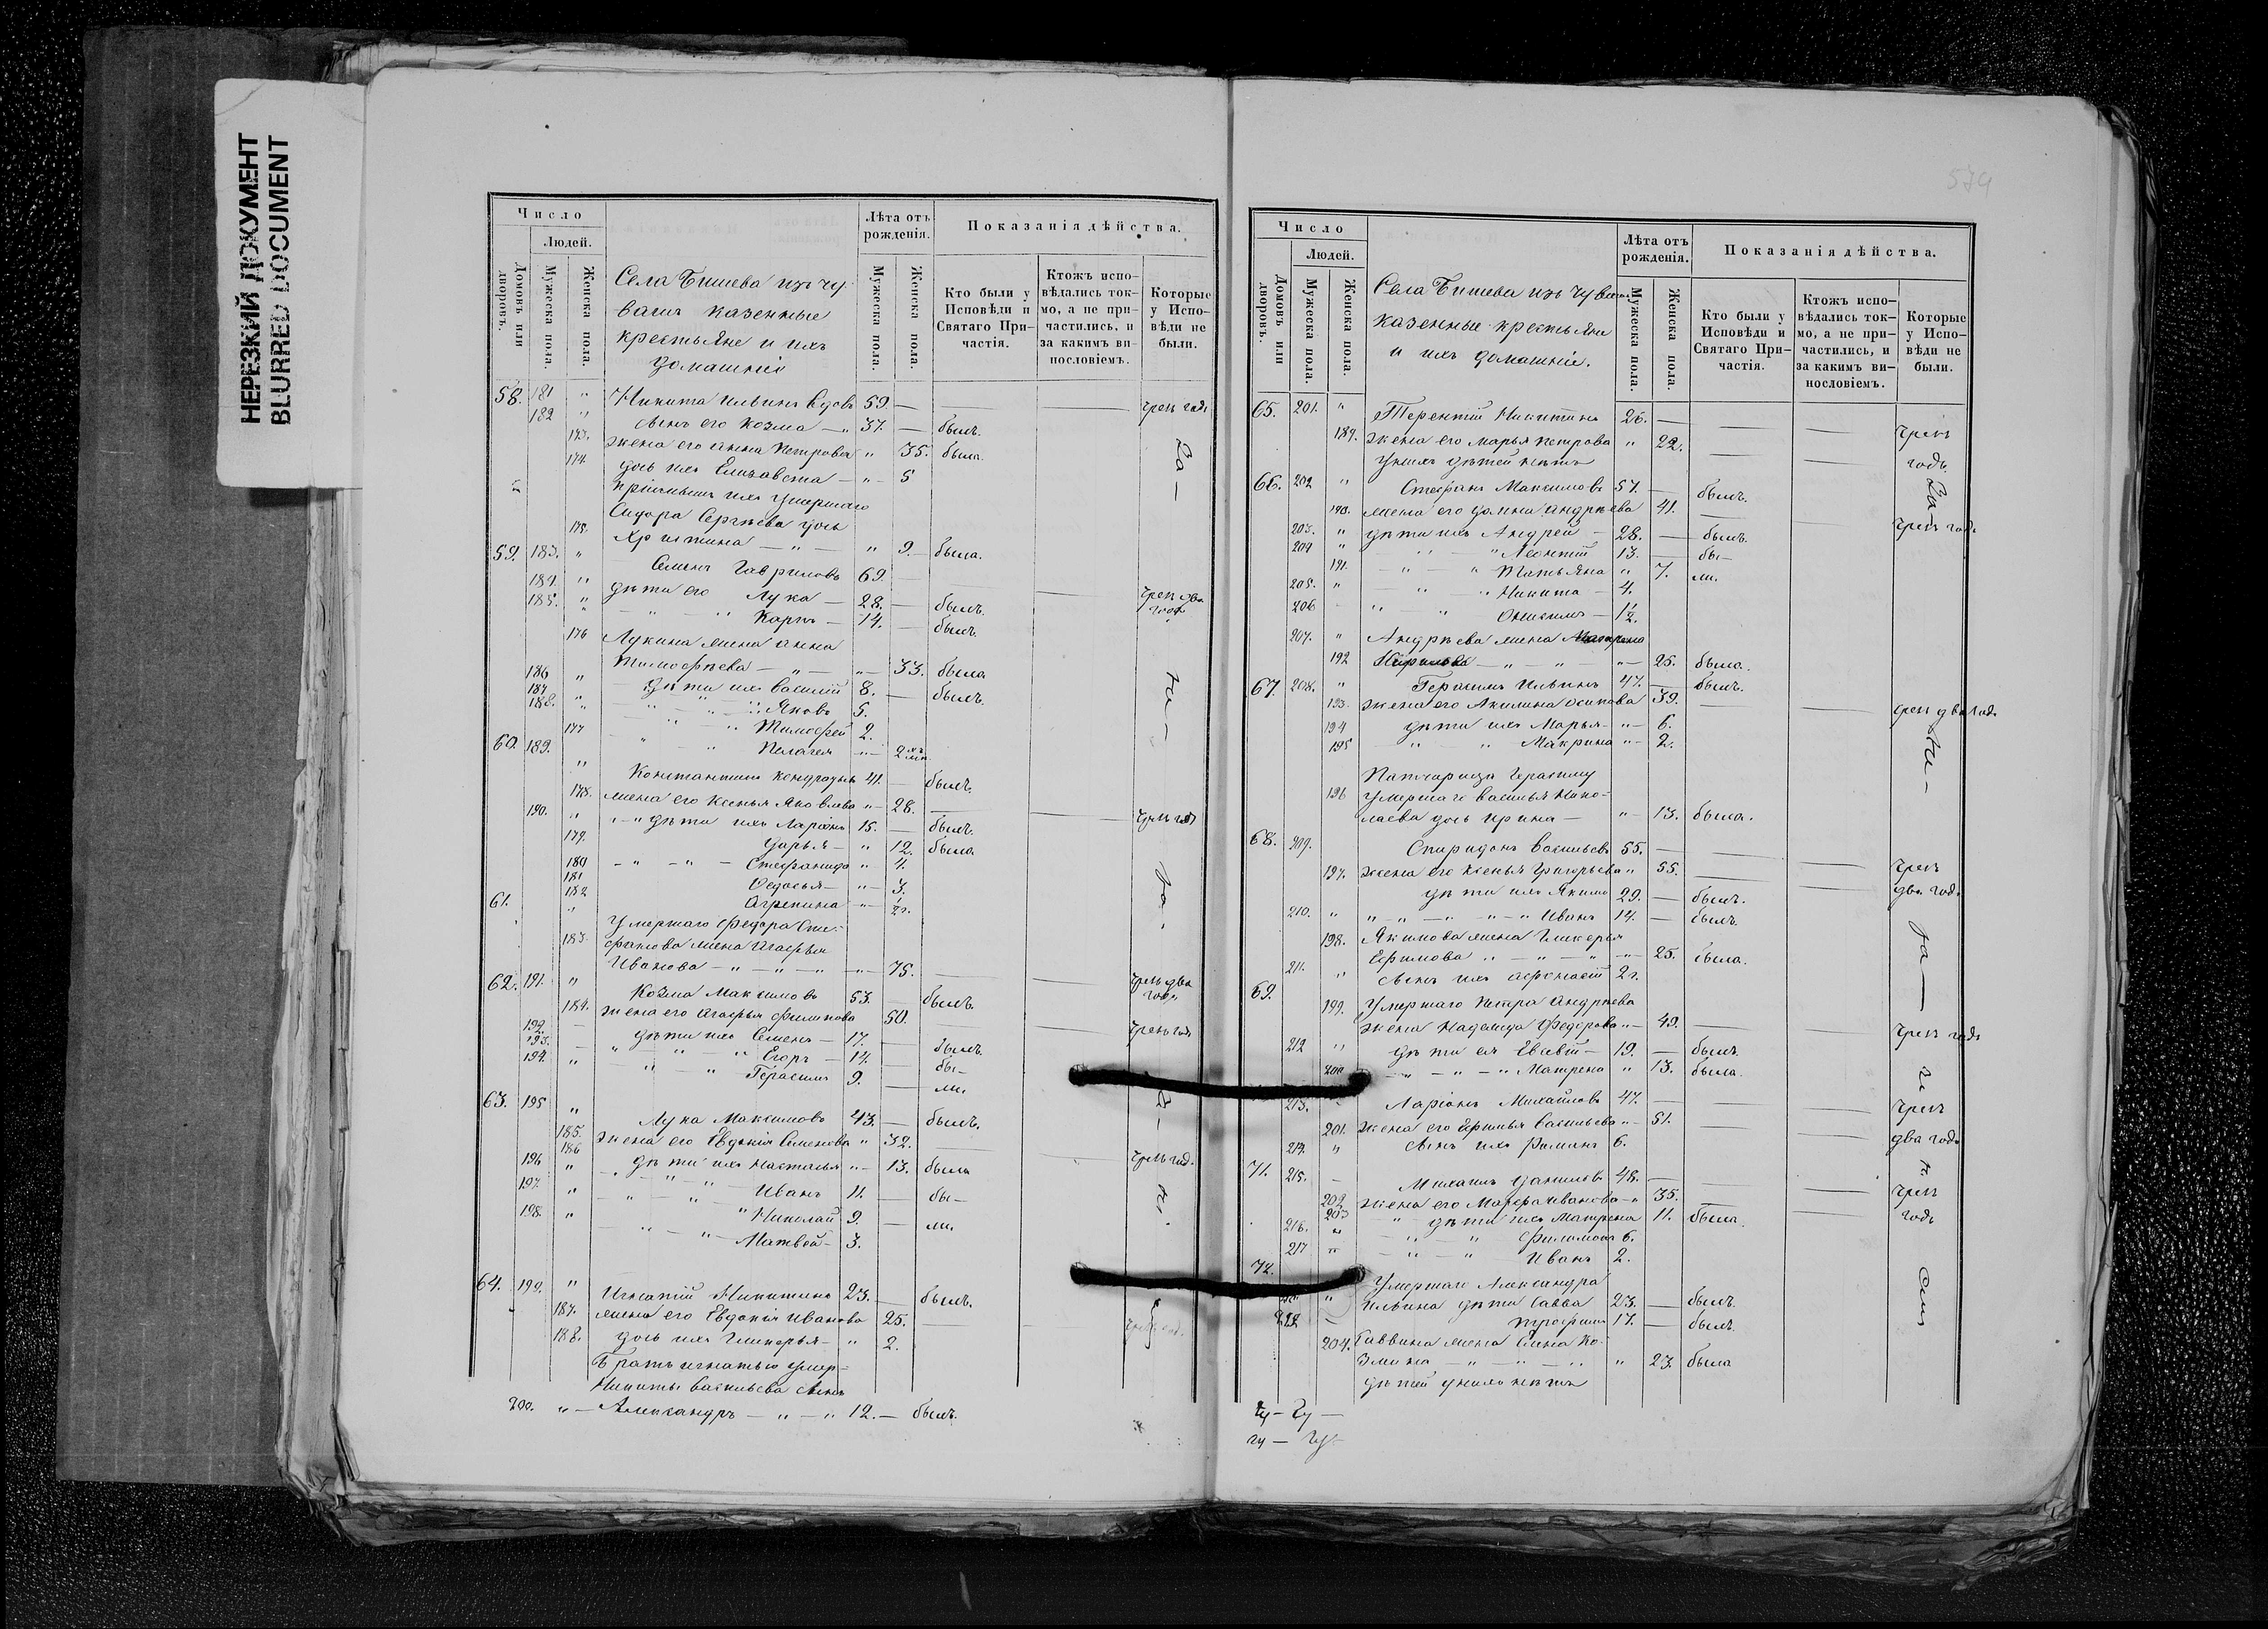 НЕРЕЗКИЙ ДОКУМЕНТ
BLURRED DOCUMENT
Число
Людей.
Домовъ или дворовъ.
Мужеска пола.
Женска пола.
Села Бишева изъ чу-
вашъ казенные
крестьяне и ихъ
домашніе
Лѣта отъ рожденія.
Мужеска пола.
Женска пола.
Показанія дѣйства.
Кто были у Исповѣди и Святаго При-частія.
Ктожъ испо-вѣдались ток-мо, а не при-частились, и за какимъ ви-нословіемъ.
Которые у Испо-вѣди не были.
58. 181 " Никита Ильинъ вдовъ 59. — чрез годъ
182 " сынъ его Козма — " 37. — былъ.
173. жена его Анна Петрова " 35. была.
174 дочь ихъ Елизавета — " — 5
пріемышъ ихъ умершаго
Сидора Сергѣева дочь
175. Христина — " — " 9. — была.
59. 183. " Семенъ Гавриловъ 69. — чрез два года
184. " дѣти его Лука — 28. — былъ.
185. " — " " Карпъ — 14. — былъ.
176 Лукина жена Анна
Тимофѣева — " — " — 33. была
186 " дѣти ихъ Василій 8. — былъ.
187 " — " — " Яковъ 5.
188. " " — " Тимофей 2.
177 " — " Пелагея " — 2 мц.
60. 189. " Константинъ Кондратьевъ 41. — былъ.
178. жена его Ксенья Яковлева " — 28. — чрез год
190. " — " дѣти ихъ Ларіонъ 15. — былъ.
179. Дарья — " 12. была.
180 — " — " — Стефанида " 4.
181 Ѳедосья — " — 3.
182 Агрепина — " — ½ г.
61. " Умершаго Федора Сте-
183. фанова жена Агафья
Иванова — " — " — " — 75. — чрез два года
62. 191. " Козма Максимовъ 53. — былъ.
184. жена его Агафья Филипова 50. — чрез год
192. — дѣти ихъ Семенъ — 17. — былъ.
193. — " — " " Егоръ — 14. — бы-
194. " " — " Герасимъ 9. — ли.
63. 195 " Лука Максимовъ 43. — былъ.
185. жена его Евдокія Семенова " 32. — чрез год.
186 дѣти ихъ Настасья " — 13. была
196 " — " — " Иванъ 11. — бы-
197. " — " " Николай 9. — ли.
198. " — " — " Матвей — 3.
64. 199. " Игнатій Никитинъ 23. — былъ.
187. жена его Евдокія Иванова 25. —
188. дочь ихъ Гликерья — " 2.
Братъ Игнатью умер-
Никиты Васильева сынъ
200. " — Александръ — " — " 12. — былъ.
574
Число
Людей.
Домовъ или дворовъ.
Мужеска пола.
Женска пола.
Села Бишева изъ чуваш
казенные крестьяне
и ихъ домашніе.
Лѣта отъ рожденія.
Мужеска пола.
Женска пола.
Показанія дѣйства.
Кто были у Исповѣди и Святаго При-частія.
Ктожъ испо-вѣдались ток-мо, а не при-частились, и за какимъ ви-нословіемъ.
Которые у Испо-вѣди не были.
65. 201. " Терентій Никитинъ 26. — чрез
189. жена его Марья Петрова " 22. — годъ
у нихъ дѣтей нѣтъ
66. 202 " Стефанъ Максимовъ 57. — былъ.
190. жена его Домна Андрѣева 41. — чрез годъ
203. " дѣти ихъ Андрей — 28. — былъ.
204 " " — " Леонтій 13. — бы-
191. — " — " Татьяна " 7. ли.
205. " — " — " Никита — 4.
206 — " " Онисимъ — 1½.
207. " Андрѣева жена
192 — " — " — " — 25. была.
67. 208. " Герасимъ Ильинъ 47. — былъ.
193. жена его Акилина Осипова 39. — чрез два года
194 дѣти ихъ Марья — " — 6.
195 — " " Макрина " — 2.
Патчерица Герасиму
196 умершаго Василья Нико-
лаева дочь Ирина — " — 13. была.
68. 209. Спиридонъ Васильевъ 55. — чрез
197. жена его Ксенья Григорьева " 55. — два года
дѣти ихъ Якимъ 29. — былъ.
210. " " — " — " — " Иванъ 14. — былъ.
198. Якимова жена Гликерья
Ефимова " — " — " " — 25. была.
211. " сынъ ихъ Афонасій 2 г.
69. 199. Умершаго Петра Андрѣева
жена Надежда Федорова " — 49. — чрез годъ
212 " дѣти ея Евсевій — 19. — былъ.
200 — " — " — " Матрена " 13. была.
213. Ларіонъ Михайловъ 47. — чрез
201. жена его Ирина Васильева " — 51. — два года
214. " сынъ ихъ Романъ 6.
71. 215. — Михаилъ Даниловъ 48. — чрез
202 жена его Марфа Иванова — " 35. — годъ
203 — " дѣти ихъ Матрена 11. была.
216. " — " — " Филимонъ 6.
217 " — " — " Иванъ 2.
72. Умершаго Александра
" Ильина дѣти Савва 23. — былъ.
Трофимъ 17. — былъ.
204. Саввина жена Елена Ко-
змина — " — " — " " 23. была
дѣтей у нихъ нѣтъ